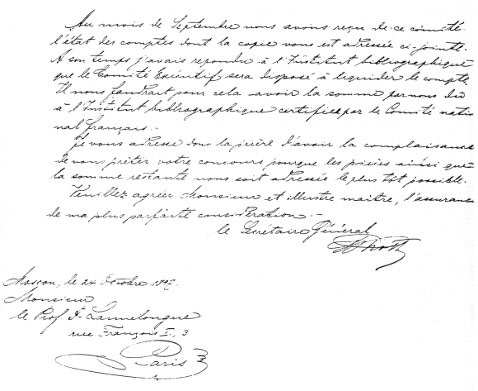 Au mois de Septembre nous avons reçu de ce comité
l'état des comptes dont la copie vous est adressée ci-jointe.
A son temps j'avais repondre à l'Institut bibliographique
que le Comité Exécutif sera disposé à liquider le compte.
Il nous faudrait pour cela avoir la somme par nous due
à l'Institut bibliographique certifiée par le Comité natio
nal français.
Je vous adresse donc la prière d'avoir la complaisance
de nous prêter votre concours pour que les pièces ainsi que
la somme restante nous soit adressée le plus tôt possible.
Veuillez agréer Monsieur et illustre maître, l'assurance
de ma plus parfaite considération.-
le Secrétaire Général
Moscou, le 24 Octobre
Monsieur
le Prof Dr Lannelongue
rue François I, 3
Paris